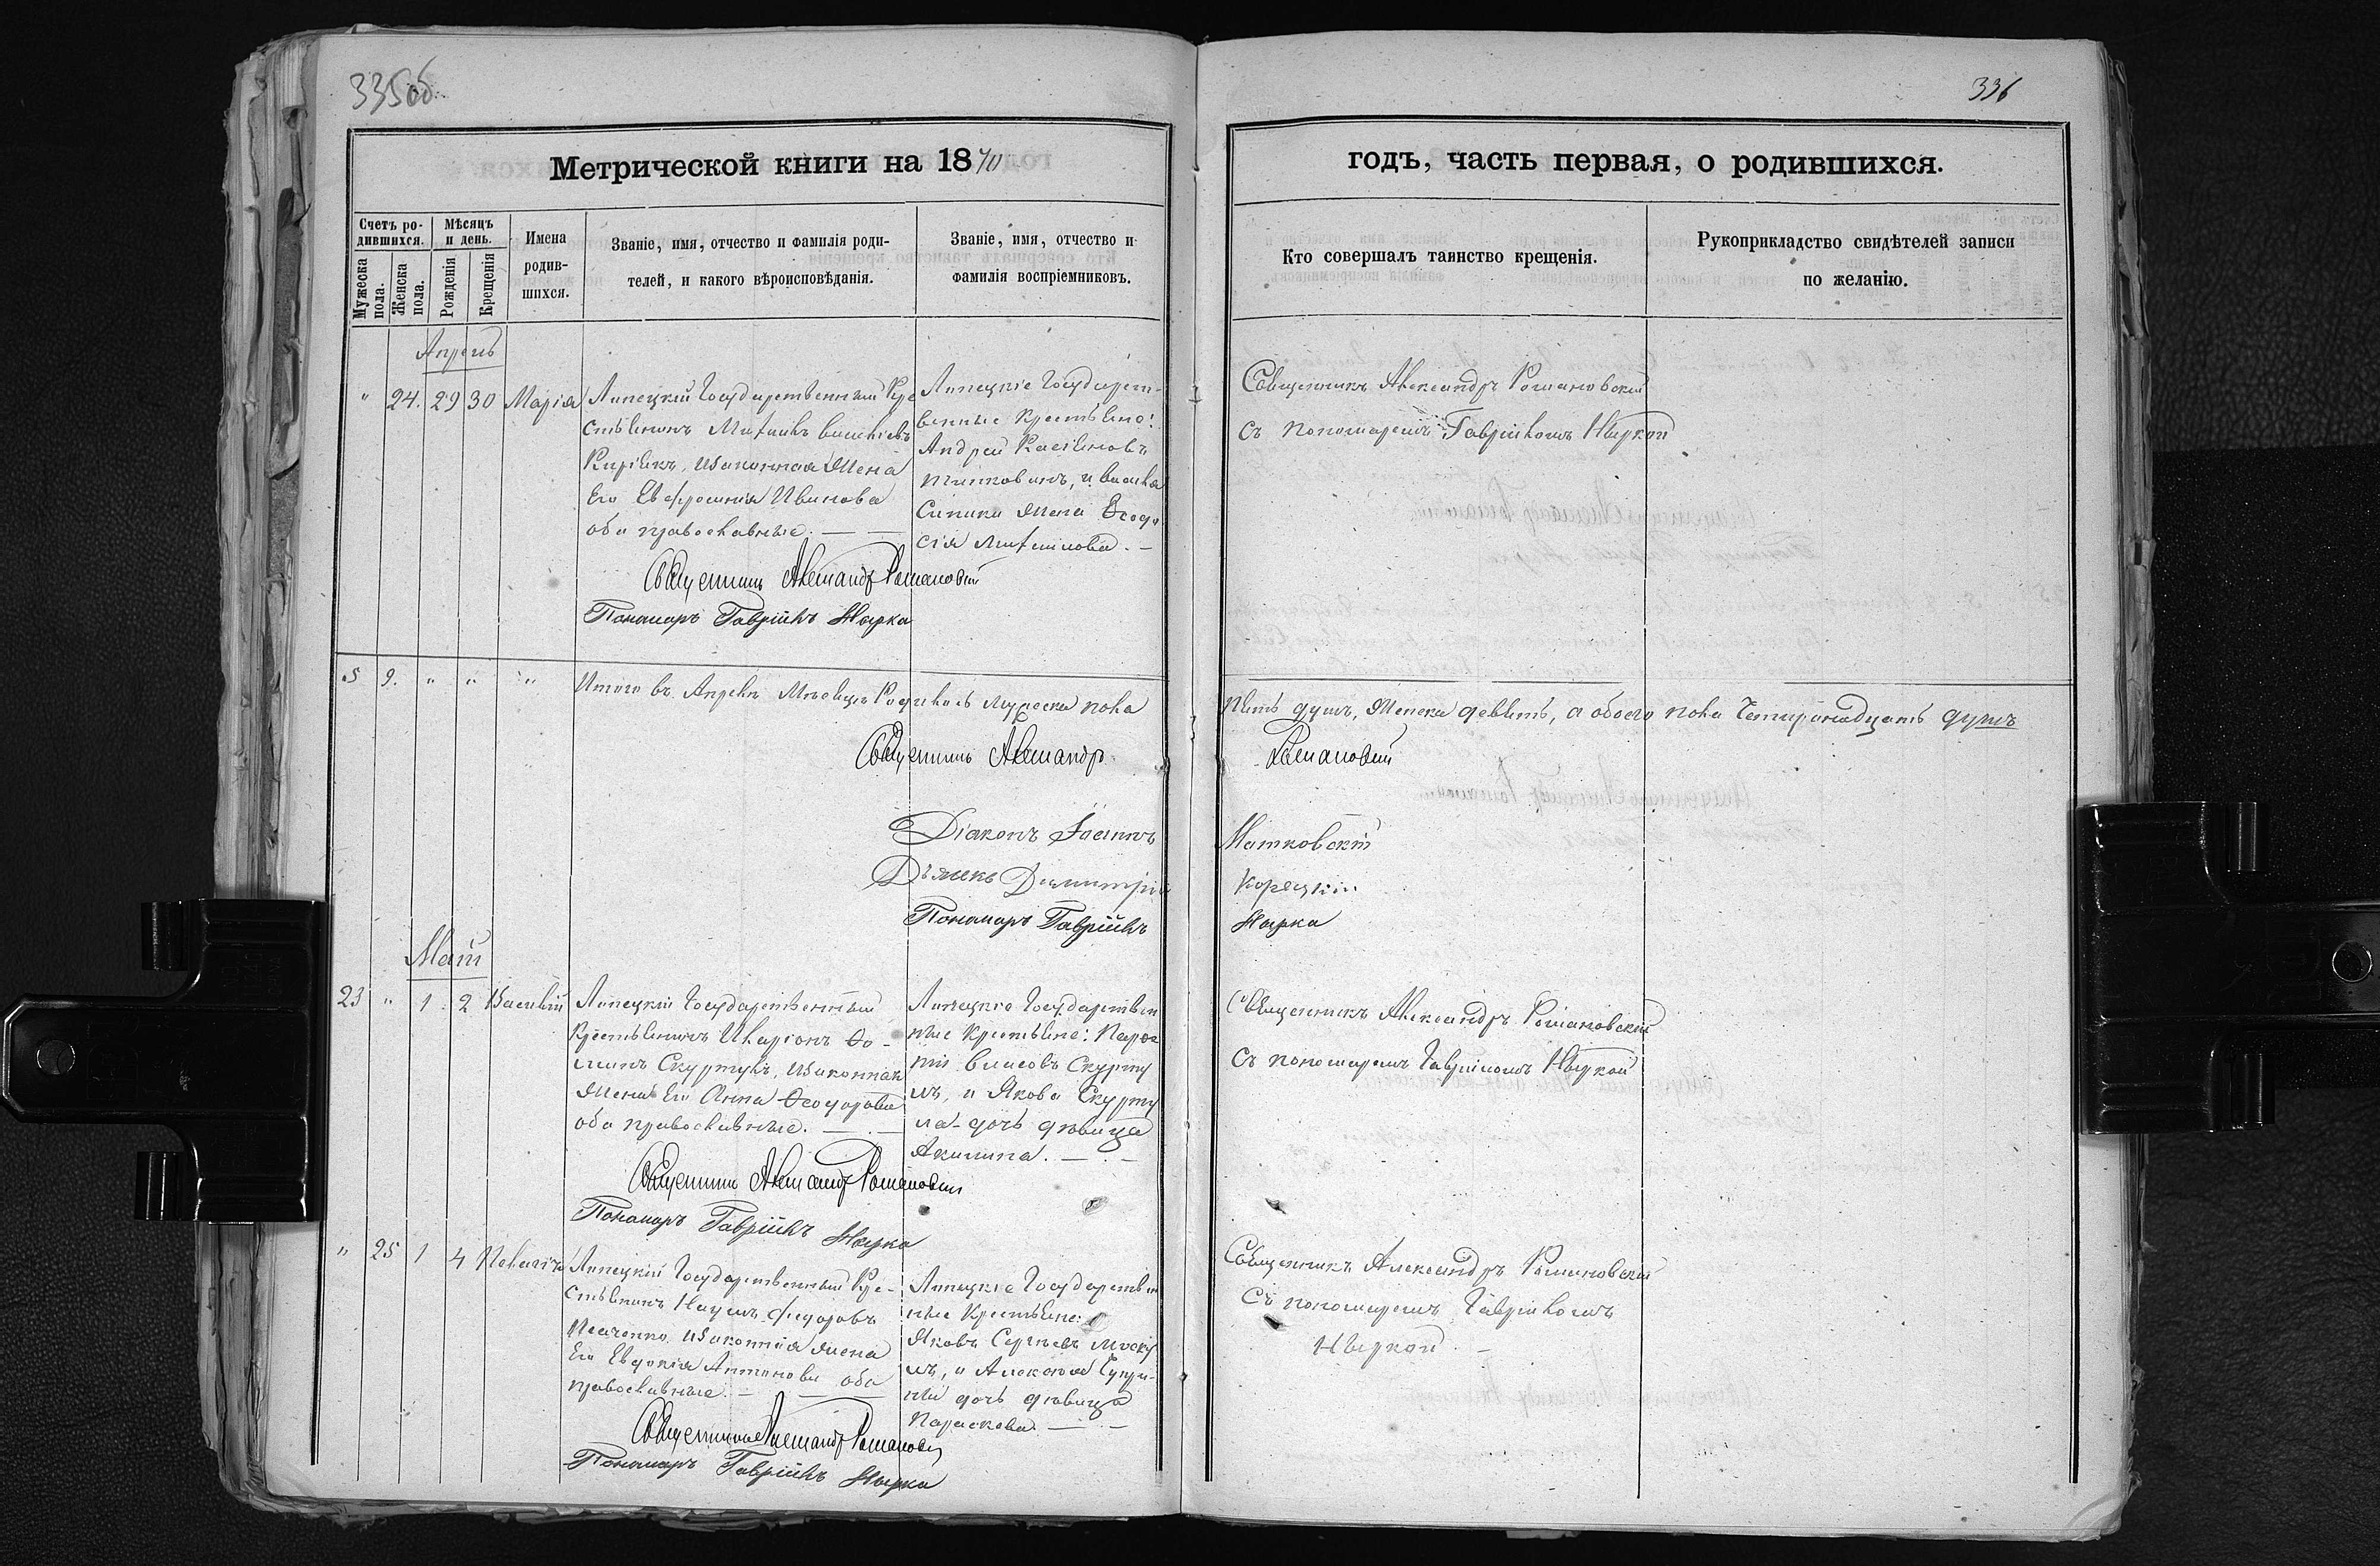 335об.
336
Метрической книги на 1870
годъ, часть первая, о родившихся.
Счетъ ро-
дившихся.
Мѣсяцъ
и день.
Мужеска
пола.
Женска
пола.
Рожденія
Крещенія
Имена
родив-
шихся.
Званіе, имя, отчество и фамилія роди-
телей, и какого вѣроисповѣданія.
Званіе, имя, отчество и
фамилія воспріемниковъ.
Кто совершалъ таинство крещенія.
Рукоприкладство свидѣтелей записи
по желанію.
Апрель
" 24. 29 30 Марія
Липецкій Государственный Кре
стьянинъ Михаилъ
законная Жена
Его Евфросинія Иванова
оба православные. —
Священникъ Александръ Романовскій
Пономарь Гавріилъ Нырка
Липецкіе Государст-
венные Крестьяне:
Андрей Касіяновъ
Жена Ѳеодо
сія Михаилова. —
Священникъ Александръ Романовскій
съ пономаремъ Гавріиломъ Ныркой
5 9. " " "
Итого въ Апрелѣ Мѣсяцѣ Родилось мужеска пола
пять душъ, Женска девять, а обоего пола Четырнадцать душъ
Священникъ Александръ
Романовскій
Діаконъ Іоаннъ
Матковскій
Дьячекъ Димитрій
Корецкій
Пономарь Гавріилъ
Нырка
Май
23 " 1 2 Василій
Липецкій Государственный
Крестьянинъ Иларіонъ Ѳо-
минъ Скуртулъ, законная
Жена Его Анна Ѳеодорова
оба православные. —
Священникъ Александръ Романовскій
Пономарь Гавріилъ Нырка
Липецкіе Государствен
ные Крестьяне:
Власовъ Скурту
лъ, и Якова Скурту
ла дочь дѣвица
Акилина. —
Священникъ Александръ Романовскій
съ пономаремъ Гавріиломъ Ныркой
" 25 1 4 Пелагія
Липецкій Государственный Кре-
стьянинъ Наумъ Федоровъ
законная Жена
Его Евдокія Антонова оба
православные. —
Священникъ Александръ Романовскій
Пономарь Гавріилъ Нырка
Липецкіе Государствен
ные Крестьяне:
Яковъ Сергѣевъ
лъ, и Алексея
дочь дѣвица
Параскева. —
Священникъ Александръ Романовскій
Съ пономаремъ Гавріиломъ
Ныркой. —